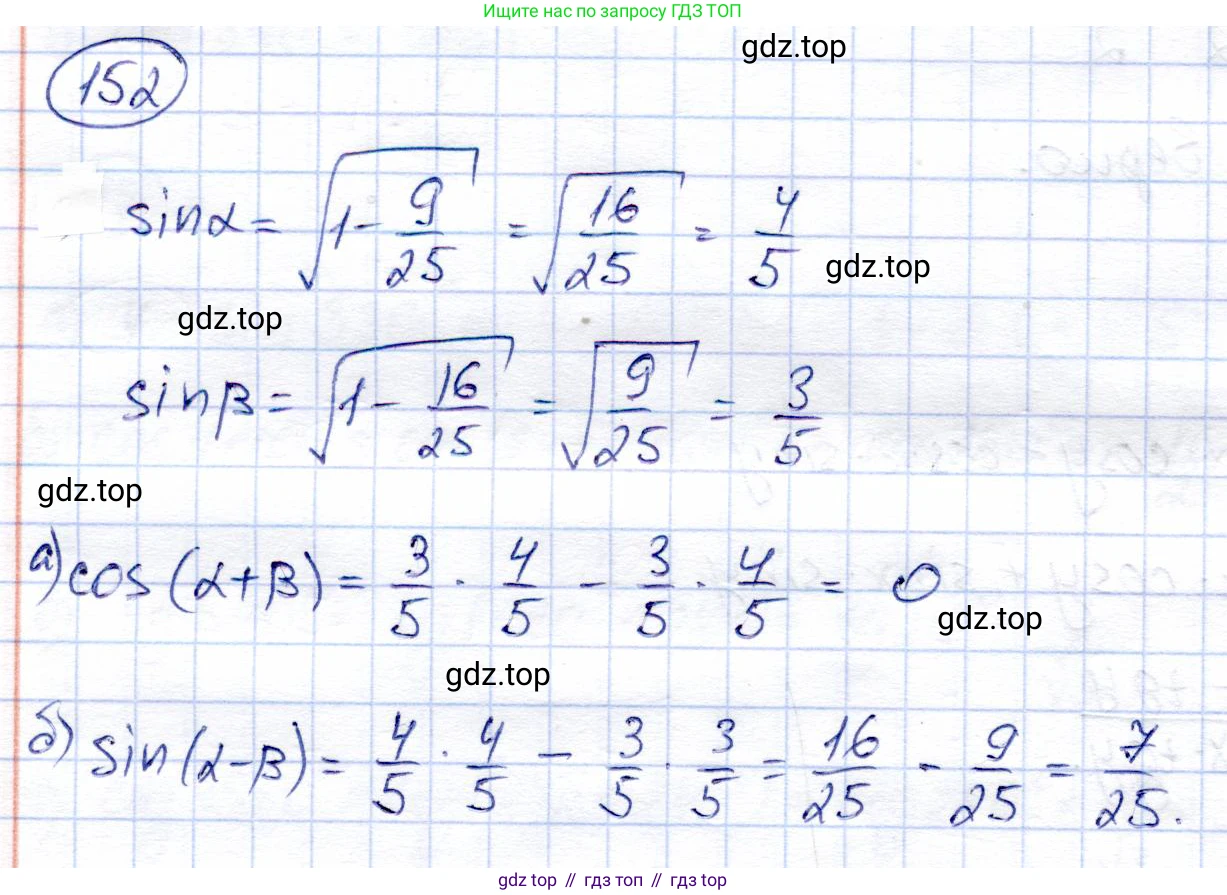 Ищите нас по запросу ГДЗ ТОП
gdz.top
152
sinα = √(1 - 9/25) = √(16/25) = 4/5
gdz.top
gdz.top
sinβ = √(1 - 16/25) = √(9/25) = 3/5
gdz.top
а) cos(α+β) = 3/5 · 4/5 - 3/5 · 4/5 = 0
gdz.top
gdz.top
б) sin(α-β) = 4/5 · 4/5 - 3/5 · 3/5 = 16/25 - 9/25 = 7/25.
gdz top // гдз топ // гдз top